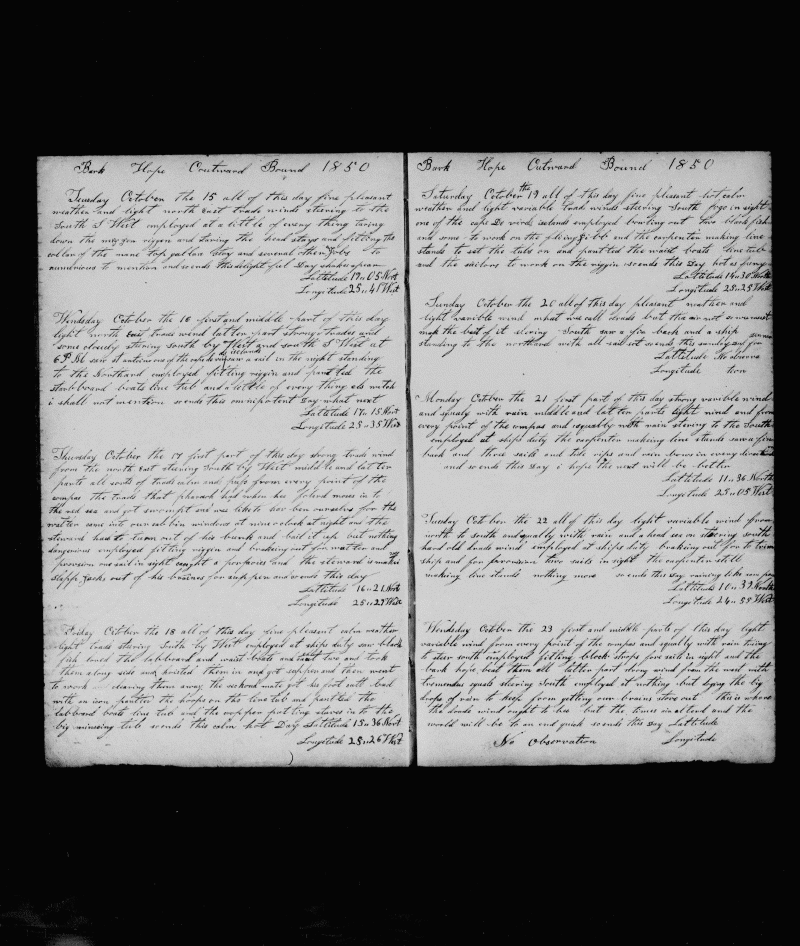 Bark Hope Outward Bound 1850
Tuesday October the 15 all of this day fine pleasant
weather and light north East trade winds stering to the
South S West employed at a little of every thing taring
down the mizen riggen and staving the head stays and fitting the
collar of the mane top gallan stay and several other Jobs to
numerous to mention and so ends this delight full Day
Lattitude 19 " 05 North
Longitude 25 " 41 West
Wendsday October the 16 first and middle part of this day
light north East trade wind latter part strong trades and
some cloudy stering South by West and South S West at
6 P M saw St antonio one of the cape de verd islands saw a sail in the night standing
to the Northard employed fitting riggin and painted the
starboard boats line tub and a little of every thing els witch
i shall not mention so ends this omnipotent Day what next
Lattitude 17 " 15 North
Longitude 25 " 35 West
Thursday October the 17 first part of this day strong trade wind
from the north East steering South by West middle and latter
parts all sorts of trade calm and pufs from every point of the
compas the trade that pharaoh had when he folerd moses in to
the red sea and got swompt and we like to have ben ourselves for the
watter came into our cabbin windows at nine oclock at night and the
steward had to turn out of his bunk and bail it up but nothing
dangerous employed fitting riggen and breaking out for watter and
provision one sail in sight caught a porpoies and the steward is making
slapp Jacks out of his business for supper and so ends this day
Lattitude 16 " 21 North
Longitude 25 " 27 West
Friday October the 18 all of this day fine plesent calm weather
light trades stering South by West employed at ships duty saw black
fish lowed the labboard and waist boats and struck two and took
them along side and hoisted them in and got supper and then went
to work clearing them away the second mate got his foot cutt bad
with an iron painted the hoops on the line tub and painted the
labboard boats line tub and the cooper putting staves in to the
big mincing tub so ends this calm hot Day Lattitude 15 " 36 North
Longitude 25 " 26 West
Bark Hope Outward Bound 1850
Saturday October the 19 all of this day fine pleasant hot calm
weather and light variable trade winds stering South fogo in sight
one of the cape De verd islands employed boating out two black fish
and some to work on the flying Jibb and the carpenter making line
stands to set the tubs on and painted the waist boats line tub
and the sailors to work on the riggin so ends this Day hot as fury
Lattitude 14 " 30 North
Longitude 25 " 25 West
Sunday October the 20 all of this day pleasant weather and
light variable wind what we call trades but they are not so we must
mak the best of it stering South saw a fin back and a ship
standing to the northard with all sail set so ends this sunday
Lattitude No observa
Longitude tion
Monday October the 21 first part of this day strong varible wind
and squaly with rain middle and latter parts light wind and from
every point of the compas and squally with rain stering to the South
employed at ships duty the carpenter makeing line stands saw a fin
back and three sails and tide rips and rain bows in every direction
and so ends this day i hope the next will be better
Lattitude 11 " 36 North
Longitude 25 " 05 West
Tuesday October the 22 all of this day light variable wind from
north to south and squaly with rain and a head sea on steering south
hard old trade wind employed at ships duty breaking out for to trim
ship and for provision two sails in sight the carpenter still
makeing line stands nothing more so ends this day raining like
Lattitude 10 " 39 North
Longitude 24 " 55 West
Wendsday October the 23 first and middle parts of this day light
variable wind from every point of the compas and squaly with rain trying
to steer south employed fitting block strops five sail in sight and the
bark hope beat them all latter part strong wind from the west with
tremendus squals stering South employed at nothing but doging the big
drops of rain to keep from getting our brains stove out this is where
the trade wind ought to bee but the times is alterd and the
world will be to an end quick so ends this day Lattitude
No Observation Longitude